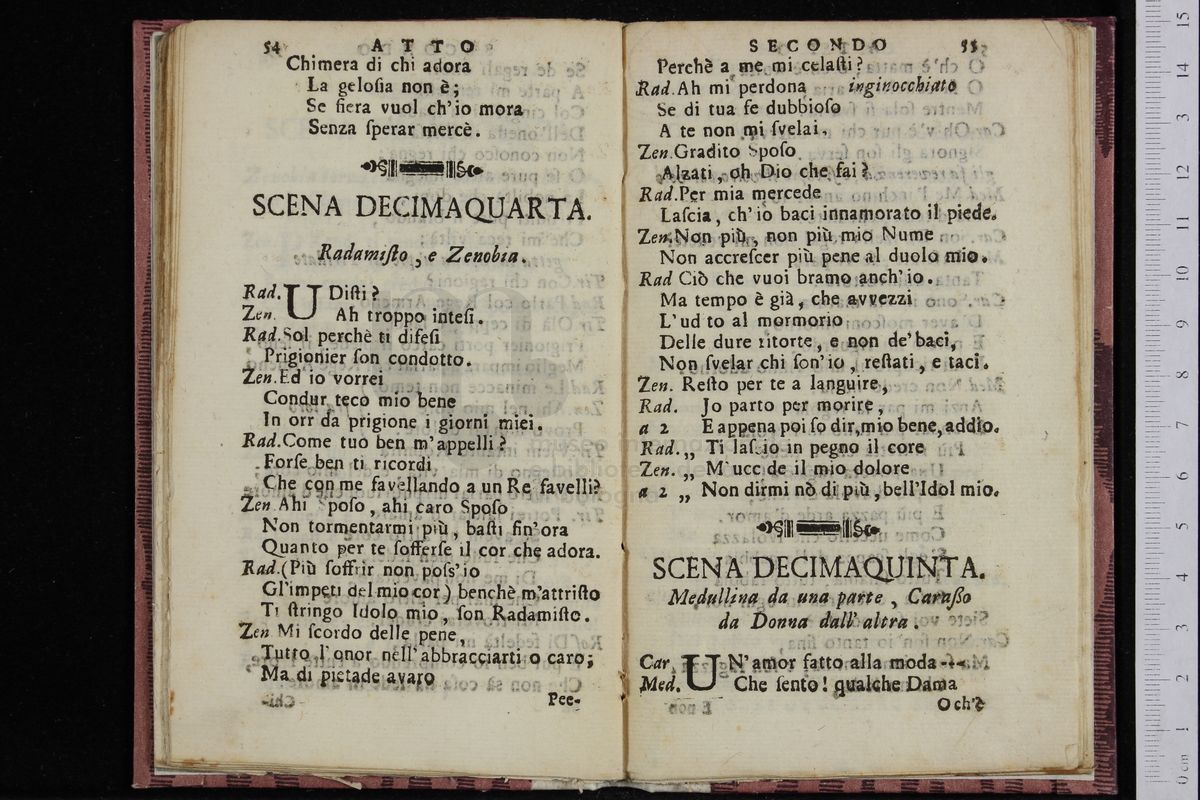 54 ATTO
Chimera di chi adora
La gelosia non è;
Se fiera vuol ch'io mora
Senza sperar mercè.
SCENA DECIMAQUARTA.
Radamisto, e Zenobia.
Rad. UDisti?
Zen. Ah troppo intesi.
Rad. Sol perchè ti difesi
Prigionier son condotto.
Zen. Ed io vorrei
Condur teco mio bene
In orr da prigione i giorni miei.
Rad. Come tuo ben m'appelli?
Forse ben ti ricordi
Che con me favellando a un Re favelli?
Zen. Ahi Sposo, ahi caro Sposo
Non tormentarmi più, basti fin'ora
Quanto per te sofferse il cor che adora.
Rad. (Più soffrir non poss'io
Gl'impeti del mio cor) benchè m'attristo
Ti stringo Idolo mio, son Radamisto.
Zen Mi scordo delle pene,
Tutto l'onor nell'abbracciarti o caro;
Ma di pietade avaro
Pee-
SECONDO 55
Perchè a me mi celasti?
Rad. Ah mi perdona inginocchiato
Se di tua fe dubbioso
A te non mi svelai.
Zen. Gradito Sposo
Alzati, oh Dio che fai?
Rad. Per mia mercede
Lascia, ch'io baci innamorato il piede.
Zen. Non più, non più mio Nume
Non accrescer più pene al duolo mio.
Rad Ciò che vuoi bramo anch'io.
Ma tempo è già, che avvezzi
L'ud to al mormorio
Delle dure ritorte, e non de'baci,
Non svelar chi son'io, restati, e taci.
Zen. Resto per te a languire,
Rad. Jo parto per morire,
a 2 E appena poi so dir, mio bene, addio.
Rad. „ Ti lascio in pegno il core
Zen. „ M'ucc de il mio dolore
a 2 „ Non dirmi nò di più, bell'Idol mio.
SCENA DECIMAQUINTA.
Medullina da una parte, Carasso
da Donna dall'altra.
Car. UN'amor fatto alla moda
Med. Che sento! qualche Dama
O ch'è
0 cm 1 2 3 4 5 6 7 8 9 10 11 12 13 14 15